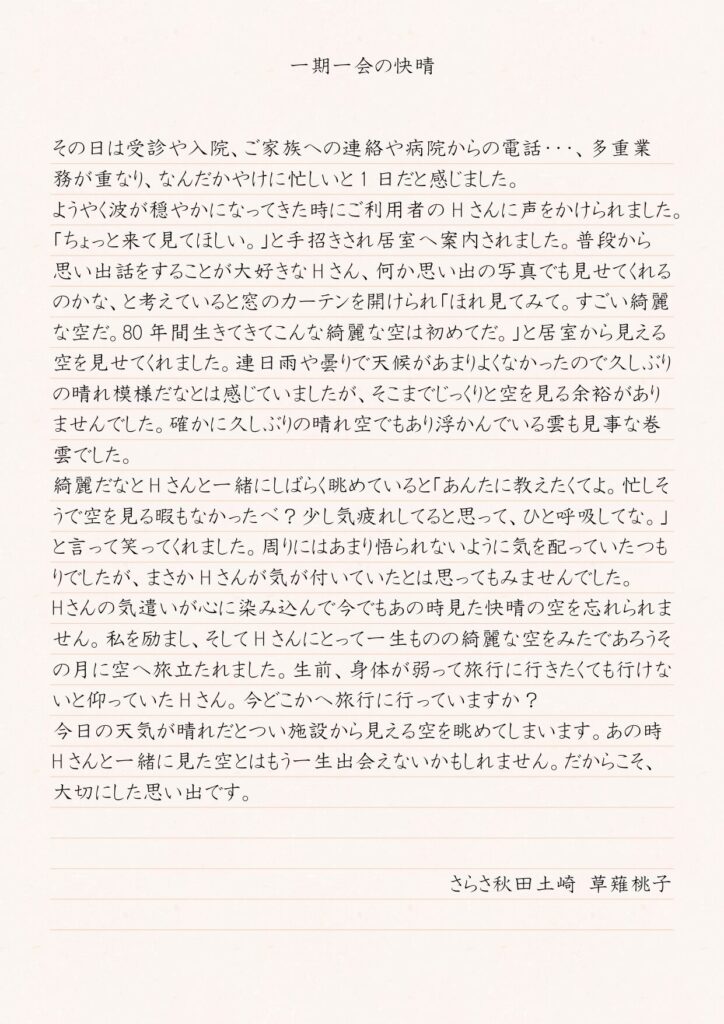 一期一会の快晴
その日は受診や入院、ご家族への連絡や病院からの電話・・・、多重業
務が重なり、なんだかやけに忙しいと1日だと感じました。
ようやく波が穏やかになってきた時にご利用者のHさんに声をかけられました。
「ちょっと来て見てほしい。」と手招きされ居室へ案内されました。普段から
思い出話をすることが大好きなHさん、何か思い出の写真でも見せてくれる
のかな、と考えていると窓のカーテンを開けられ「ほれ見てみて。すごい綺麗
な空だ。80年間生きてきてこんな綺麗な空は初めてだ。」と居室から見える
空を見せてくれました。連日雨や曇りで天候があまりよくなかったので久しぶり
の晴れ模様だなとは感じていましたが、そこまでじっくりと空を見る余裕があり
ませんでした。確かに久しぶりの晴れ空でもあり浮かんでいる雲も見事な巻
雲でした。
綺麗だなとHさんと一緒にしばらく眺めていると「あんたに教えたくてよ。忙しそ
うで空を見る暇もなかったべ？少し気疲れしてると思って、ひと呼吸してな。」
と言って笑ってくれました。周りにはあまり悟られないように気を配っていたつも
りでしたが、まさかHさんが気が付いていたとは思ってもみませんでした。
Hさんの気遣いが心に染み込んで今でもあの時見た快晴の空を忘れられま
せん。私を励まし、そしてHさんにとって一生ものの綺麗な空をみたであろうそ
の月に空へ旅立たれました。生前、身体が弱って旅行に行きたくても行けな
いと仰っていたHさん。今どこかへ旅行に行っていますか？
今日の天気が晴れだとつい施設から見える空を眺めてしまいます。あの時
Hさんと一緒に見た空とはもう一生出会えないかもしれません。だからこそ、
大切にした思い出です。
さらさ秋田土崎 草薙桃子